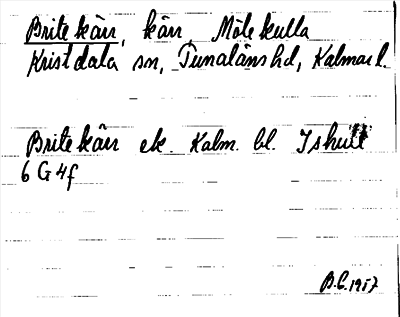 Britekärr, kärr, Mölekulla
Kristdala sn, Tunaläns hd, Kalmar l.
Britekärr ek. Kalm. bl. Ishult
6 G 4f
B.C. 1957